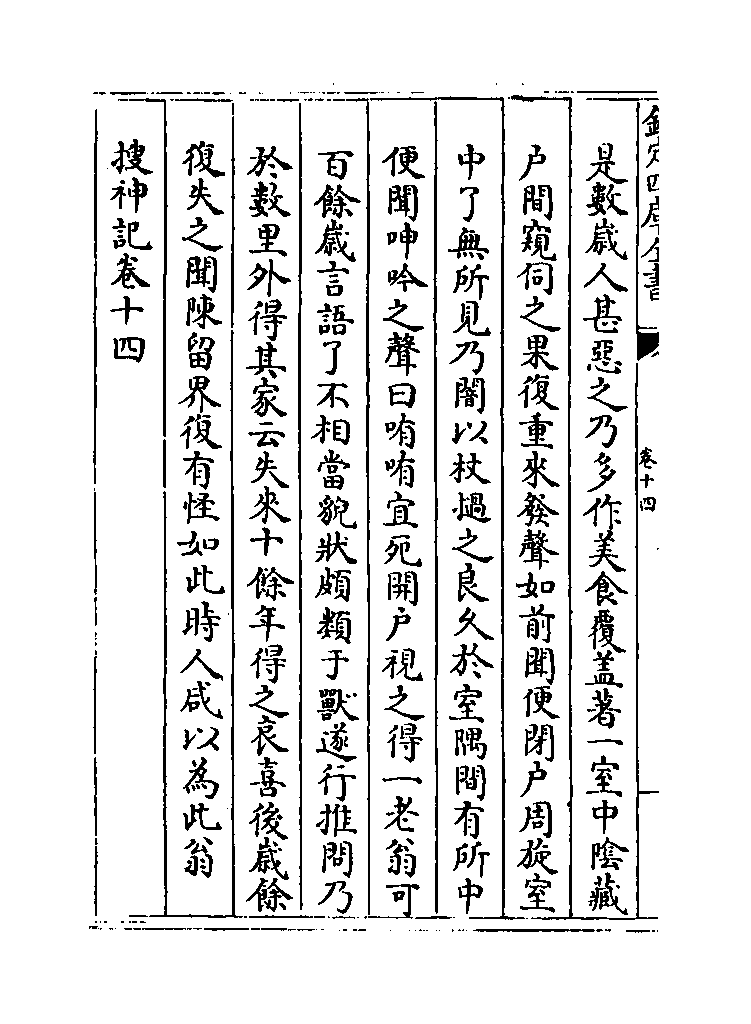 欽定四庫全書
卷十四
是數歲人甚惡之乃多作美食覆盖著一室中隂藏
户間窺伺之果復重來發聲如前聞便閉户周旋室
中了無所見乃闇以杖檛之良久於室隅間有所中
便聞呻吟之聲曰哊哊宜死開户視之得一老翁可
百餘歲言語了不相當貌狀頗類于獸遂行推問乃
於數里外得其家云失來十餘年得之哀喜後歲餘
復失之聞陳留界復有怪如此時人咸以為此翁
搜神記卷十四